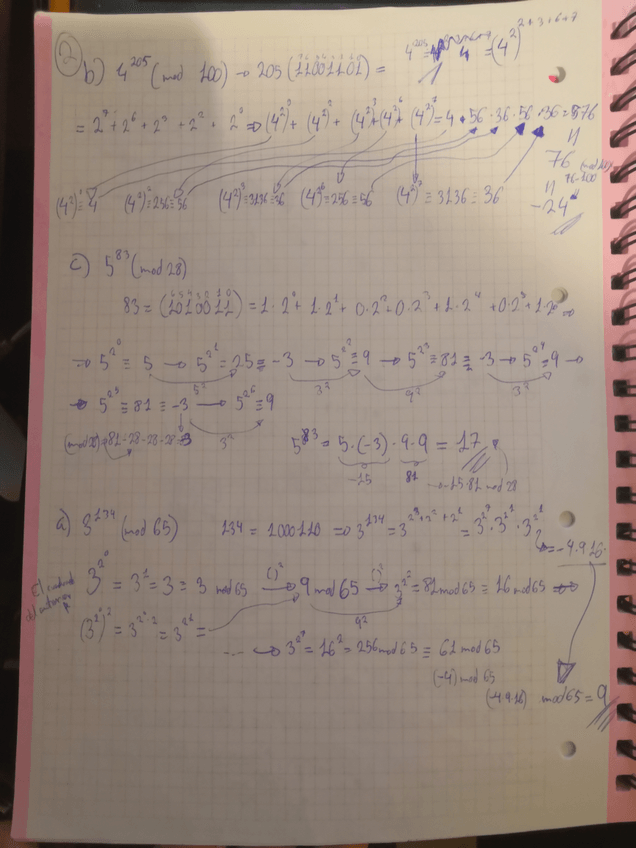 ② b) 4^205 (mod 100) → 205 (11001101) =
4^205 = 4 = (4^2)^2+3+6+7
= 2^7 + 2^6 + 2^3 + 2^2 + 2^0 ⇒ (4^2)^0 + (4^2)^2 + (4^2)^3 + (4^2)^6 + (4^2)^7 = 4 · 56 · 36 · 56 · 36 = 576
76 (mod 100)
76-100
-24
(4^2)^1 ≡ 4 (4^2)^2 ≡ 256 ≡ 56 (4^2)^3 ≡ 3136 ≡ 36 (4^2)^6 ≡ 256 ≡ 56 (4^2)^7 ≡ 3136 ≡ 36
c) 5^83 (mod 28)
6 5 4 3 2 1 0
83 = (1010011) = 1·2^0 + 1·2^1 + 0·2^2 + 0·2^3 + 1·2^4 + 0·2^5 + 1·2^6 ⇒
→ 5^2^0 ≡ 5 → 5^2^1 = 25 ≡ -3 → 5^2^2 ≡ 9 → 5^2^3 ≡ 81 ≡ -3 → 5^2^4 ≡ 9 →
5^2 3^2 9^2 3^2
→ 5^2^5 ≡ 81 ≡ -3 → 5^2^6 ≡ 9
(mod 28) 81-28-28-28 = -3 3^2
5^83 = 5·(-3)·9·9 = 17
-15 81 → -15·81 mod 28
a) 3^134 (mod 65) 134 = 1000110 ⇒ 3^134 = 3^2^7+2^2+2^1 = 3^2^7 · 3^2^2 · 3^2^1
= -4·9·16
3^2^0 = 3^1 = 3 ≡ 3 mod 65 →()^2 9 mod 65 →()^2 3^2^2 = 81 mod 65 ≡ 16 mod 65 ⇒
El
del anterior
9^2
(3^2^0)^2 = 3^2^0·2 = 3^2^1 =
.... → 3^2^7 = 16^2 = 256 mod 65 ≡ 61 mod 65
(-4) mod 65
(-4·9·16) mod 65 = 9